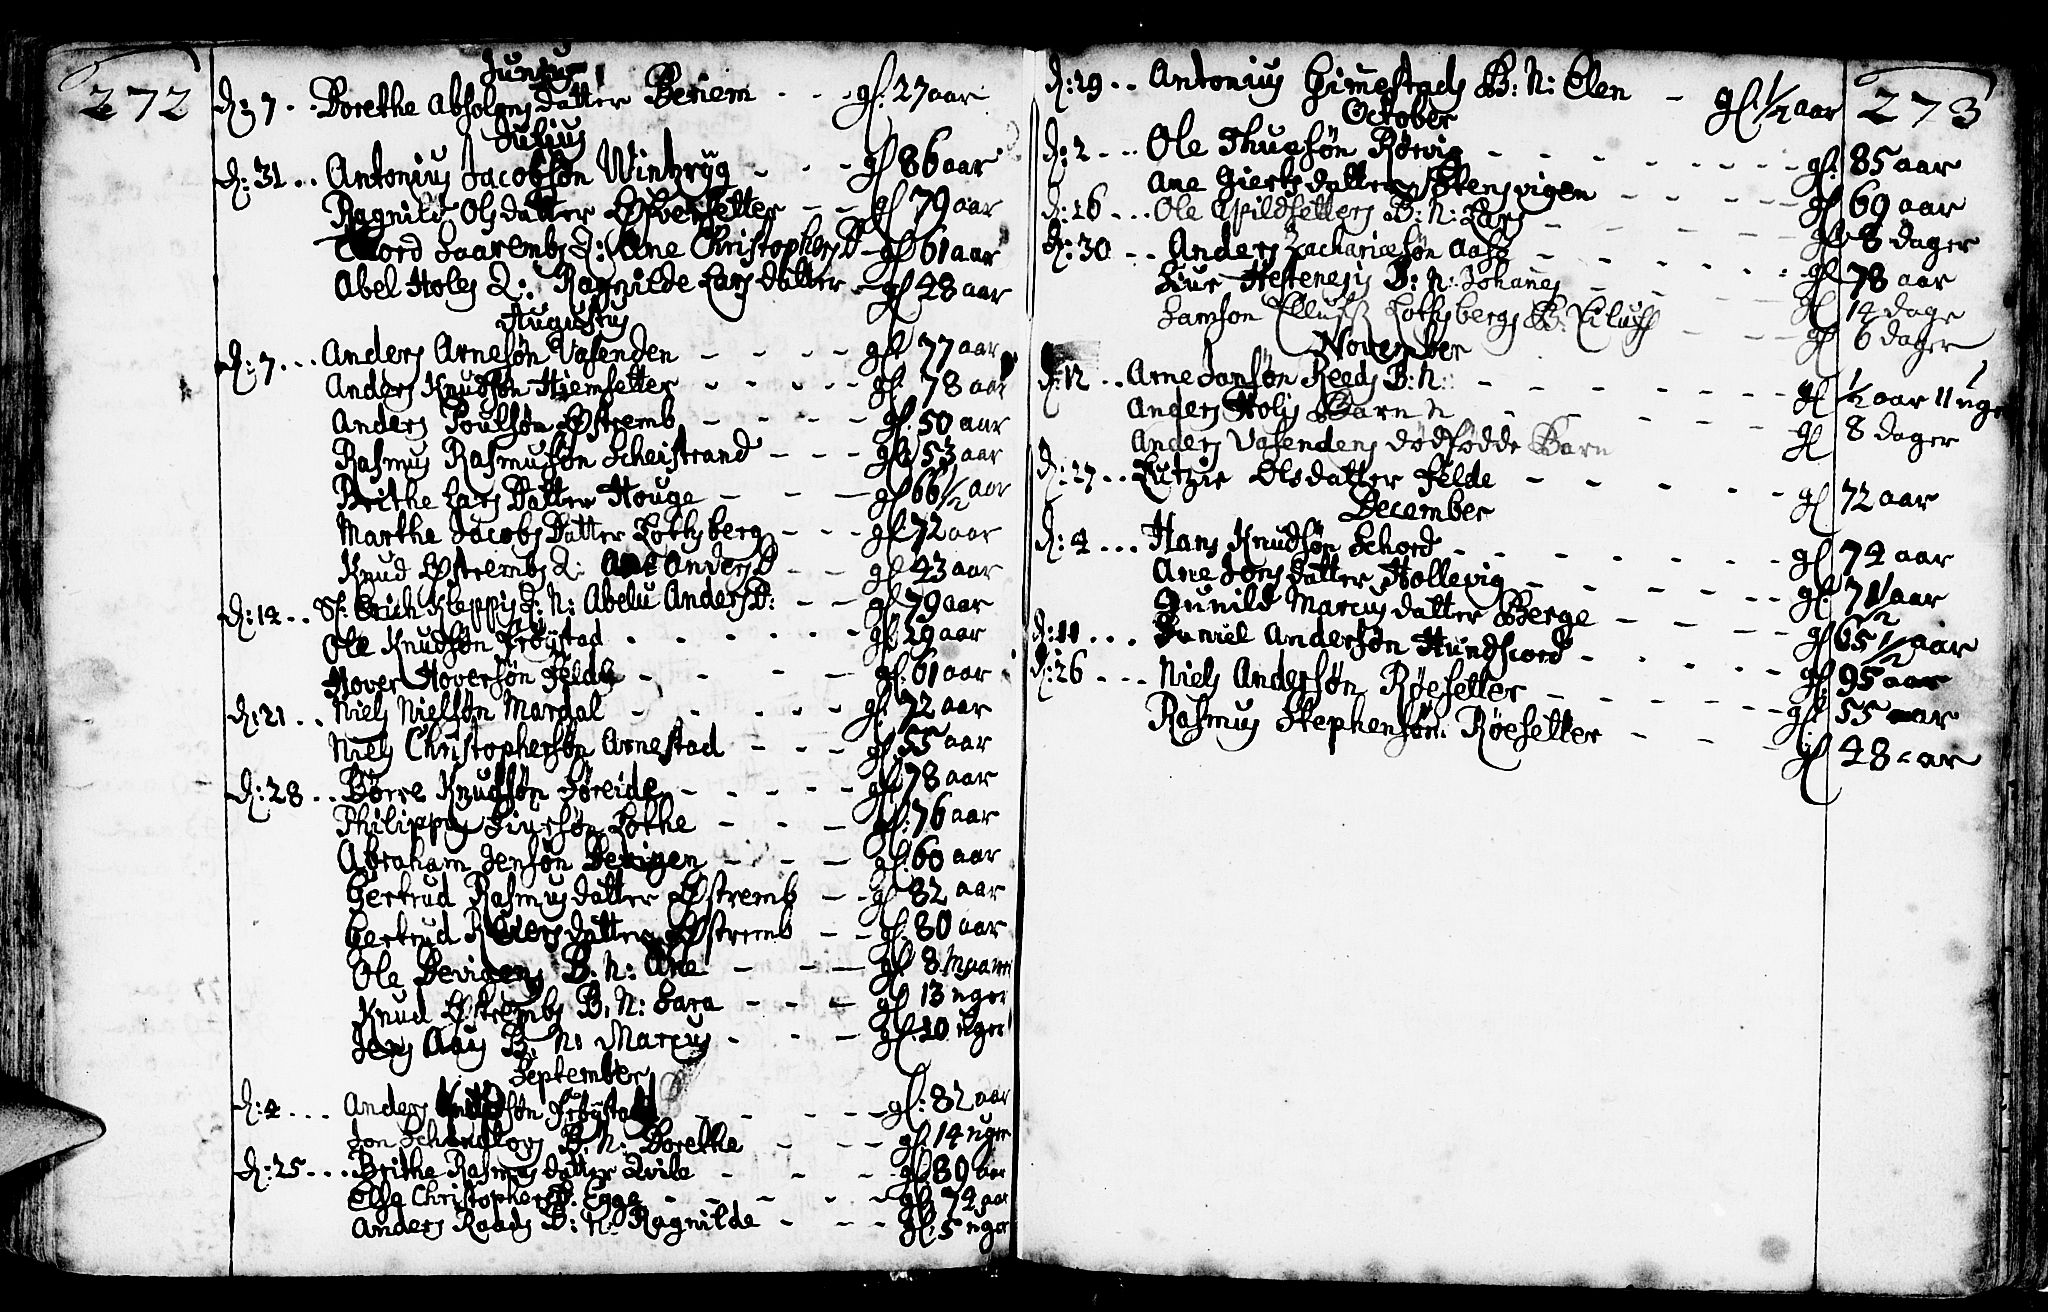 272
Junius
d: 7 . . Dorethe Absolons datter Beriem - - - gl: 27 aar
Julius
d: 31 . . Antonius Jacobsøn Winteryg - - - gl 86 aar
Ragnild Ols datter - - gl 79 aar
Q: Ane Christophers D - gl 61 aar
Abel Holes Q: Ragnilde Lars datter - gl 48 aar
Augustus
d: 7 . . . Anders Arnesøn Vasenden - - - - gl 77 aar
Anders Knudsøn Hiemsetter - - - - - gl. 78 aar
Anders Poulsøn Østremb - - - - gl. 50 aar
Rasmus Rasmusøn Scheistrand - - - gl 53 aar
Brithe Lars Datter Houge - - - gl 66 1/2 aar
Marthe Jacobs Datter Lothsberg - - - gl 72 aar
Knud Østrembs Q: Ane Anders D - - gl 43 aar
d: 14 . . Sl: Erich Kleppis Q: N: Abelu Anders D: - - gl 79 aar
Ole Knudsøn Frøystad - - - - - - gl 29 aar
Hover Hoversøn Felde - - - - gl. 61 aar
d: 21 . . Niels Nielsøn Mardal - - - - - gl. 72 aar
Niels Christophersøn Arnestad - - - gl 55 aar
d: 28 . . Børre Knudsøn Føreide - - - - - gl 78 aar
Philippus Lothe - - - gl: 76 aar
Abraham Jensøn Devigen - - - - gl 60 aar
Gertrud Rasmus datter Østremb - - gl 82 aar
Gertrud datter Østremb - - gl. 80 aar
Ole Devigens B: N: Ane - - - gl. 8 maaner
Knud Østrembs B: N: Sara - - - gl 13 uger
Jens Aaus B: N: Marcus - - - - gl. 10 uger
September
d: 4 . . . Anders Knudsøn Frøystad - - - - gl: 82 aar
Jon B. N: Dorethe - - - - gl 14 uger
d: 25 . . . Brithe Rasmus datter Qvile - - - - gl 89 aar
Elsa Christophers D. Egge - - - - - - gl 74 aar
Anders Raads B: N: Ragnilde - - - - gl. 5 uger
d: 29 . . Antonius Gimestads B: N: Elen - gl. 1/2 aar
273
October
d: 2 . . . Ole Thuesøn Rørvig - - - - - - - gl. 85 aar
Ane Gierts datter - - - - - gl 69 aar
d: 16 . . . Ole Apildsetters B: N: Lars - - - - - gl 8 dager
d: 30 . . Anders Zachariæsøn Aass - - - - - - gl 78 aar
B: N: Johanes - - - - - gl 14 dage
Samson Lothsbergs B: - - - gl 6 dager
November
d: 12 . . Arne Jonsøn Reeds B: N: - - - - - gl 1/2 aar 11 uger
Anders Holis Barn N - - - - - gl 8 dager
Anders Vasendens dødfødde Barn gl
d: 27 . . Olsdatter Felde - - - - - gl 72 aar
December
d: 4 . . . Hans Knudsøn Schord - - - - - - gl 74 aar
Ane Jons datter Hollevig - - - - - - gl. 71 1/2 aar
Gunild Marcus datter Berge - - - - - gl 65 1/2 aar
d: 11 . . . Daniel Andersøn Hundscord - - - - - gl 95 aar
d: 26 . . . Niels Andersøn Røesetter - - - - - - gl 55 aar
Rasmus Stephensøn Røesetter - - - - gl 48 aar